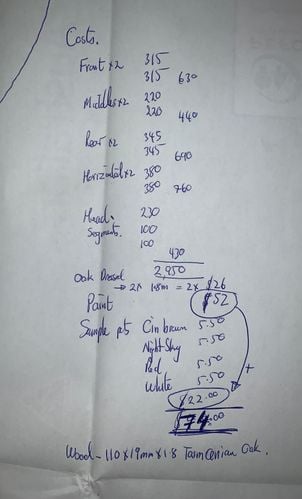 Costs.
Front x2 315
315 630
Middles x2 220
220 440
Rear x2 345
345 690
Horizontal x2 380
380 760
Head. 230
Segments. 100
100
430
Oak Dressed 2,950
→ 2x 1.8m = 2x $26
Paint $52
Sample pots Cin brown 5.50
Night Sky 5.50
Red 5.50
White 5.50
+
$22.00
$74.00
Wood - 110 x 19mm x 1.8 Tasmanian Oak.